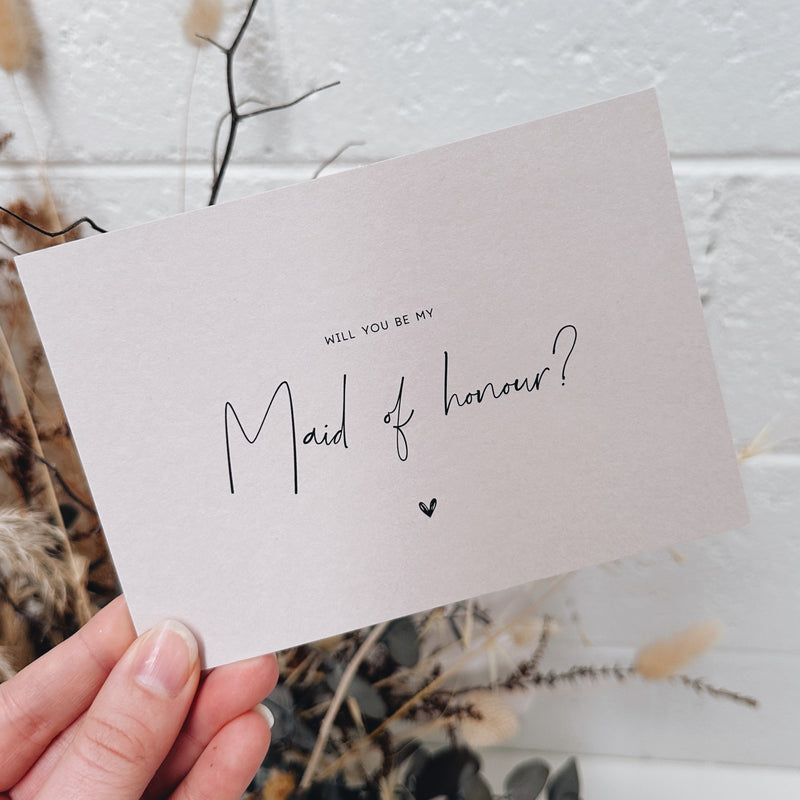 WILL YOU BE MY
Maid of honour?